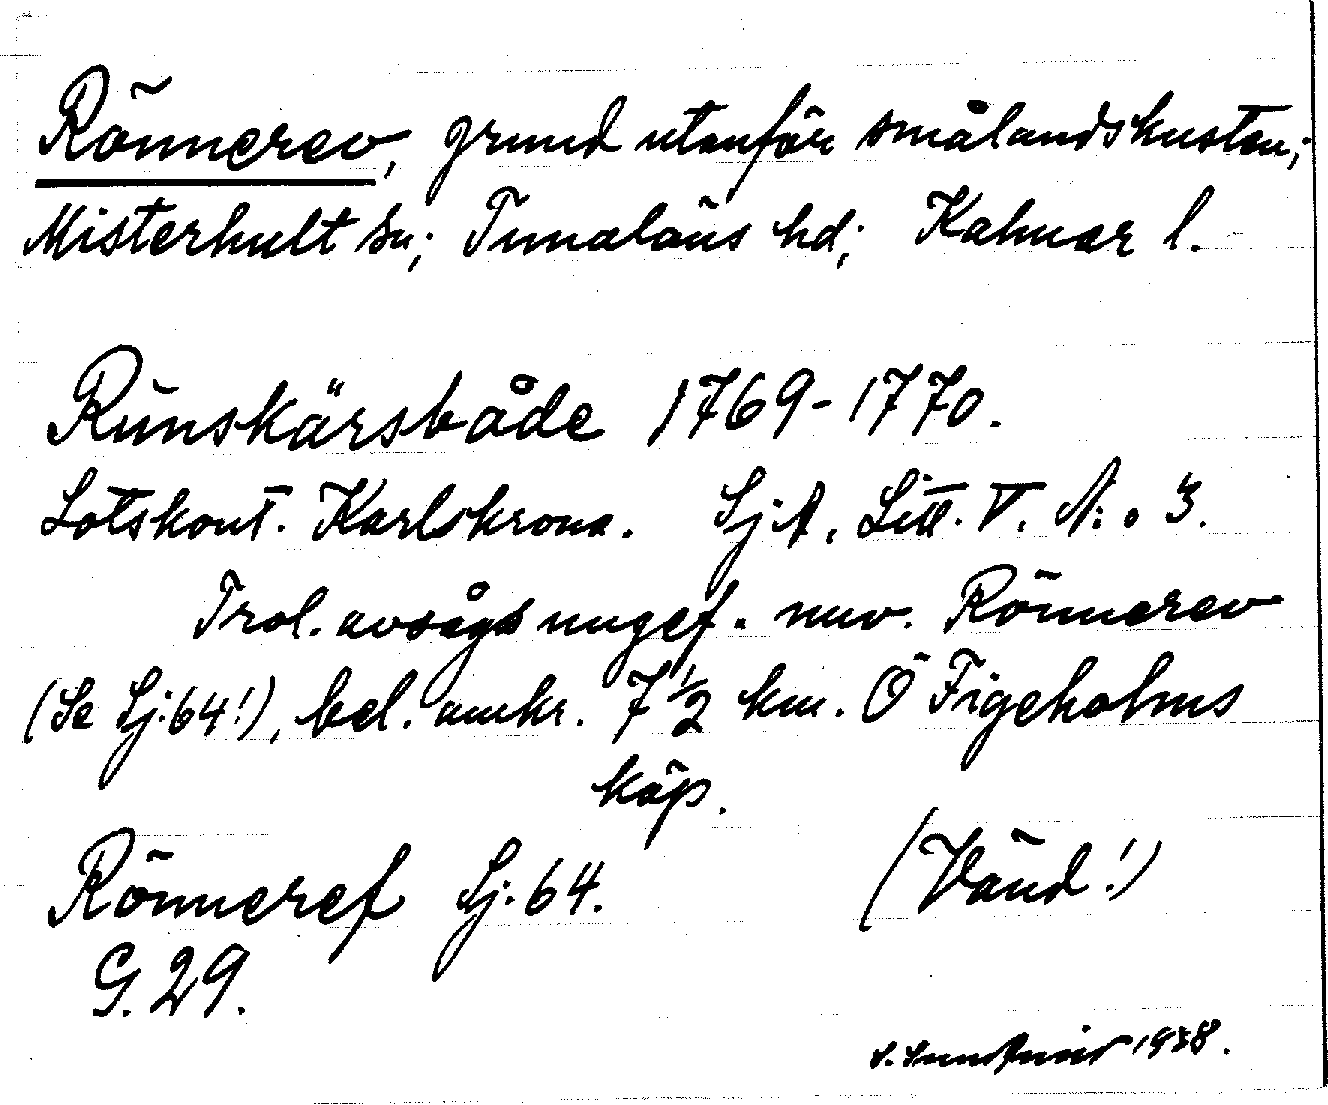 Rönnerev, grund utanför smålandskusten;
Misterhult sn; Tunaläns hd; Kalmar l.
Runskärsbåde 1769-1770.
Lotskont. Karlskrona. Sj.A. Litt. V. N:o 3.
Trol. avsågs ungef. nuv. Rönnerev
(Se Sj.64!), bel. omkr. 7 1/2 km. Ö Figeholms
köp.
Rönneref Sj. 64. (Vänd!)
G. 29.
1938.